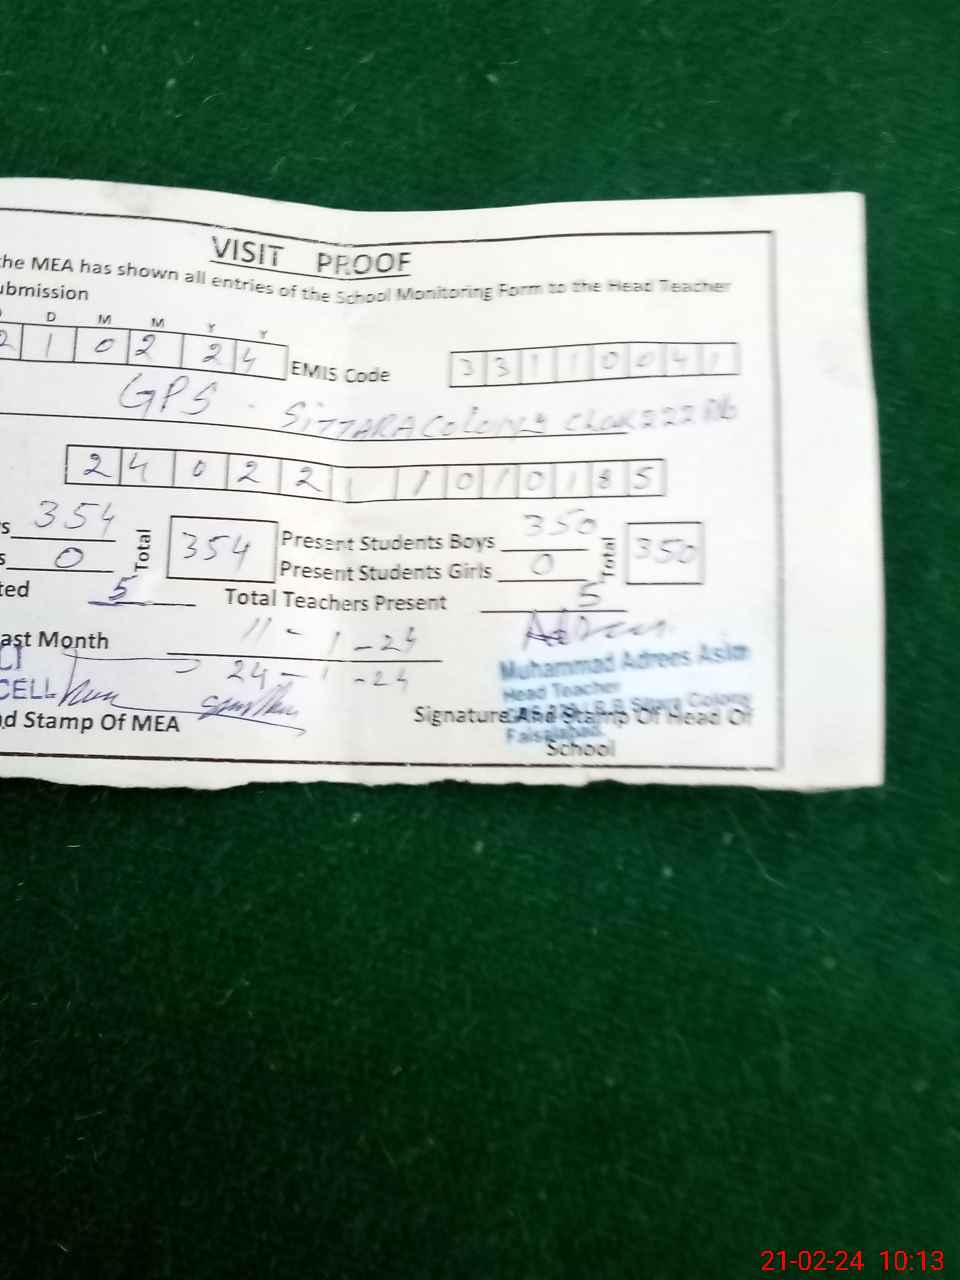 VISIT PROOF
the MEA has shown all entries of the School Monitoring Form to the Head Teacher
ubmission
D M M Y Y
2 1 0 2 2 4 EMIS Code 3 3 1 1 0 0 4 1
GPS - SITTARA Colony Chak 222 Rb
2 4 0 2 2 1 1 0 1 0 1 8 5
s 354 Total 354 Present Students Boys 350 Total 350
s 0 Present Students Girls 0
ted 5 Total Teachers Present 5
ast Month 11-1-24
24-1-24
CELL
Muhammad Adrees Asim
Head Teacher
Colony
Faisalabad.
nd Stamp Of MEA Signature And Stamp Of Head Of
School
21-02-24 10:13